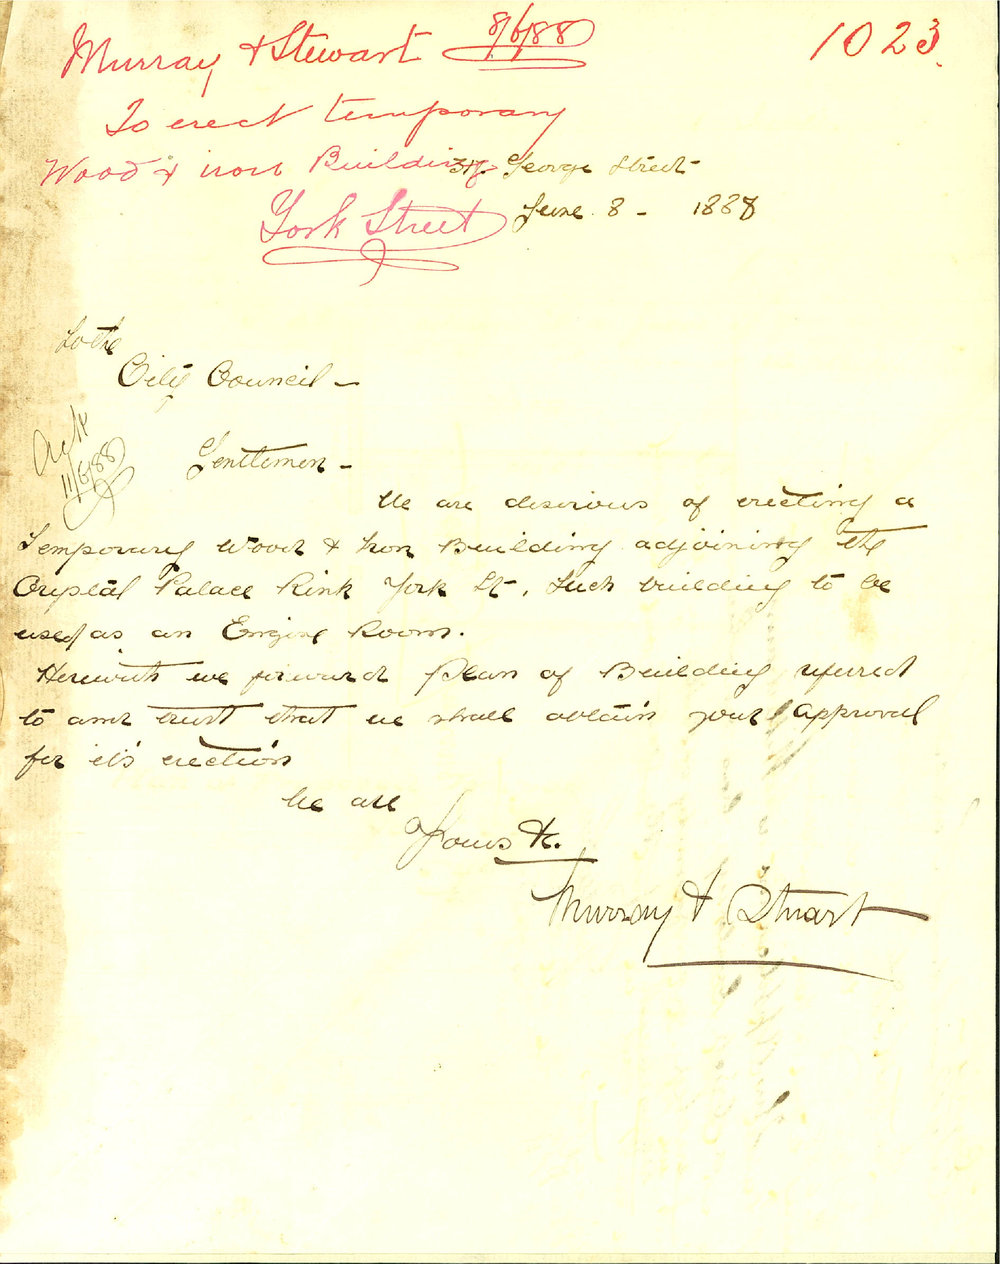 Murray & Stewart 8/6/88
1023
To erect temporary
Wood & iron Building
York Street
George Street
June 8 - 1888
To the
City Council -
Ack
11/6/88
Gentlemen -
We are desirous of erecting a
Temporary Wood & Iron Building adjoining the
Crystal Palace Rink York St, Such building to be
used as an Engine Room.
Herewith we forward Plan of Building referred
to and trust that we shall obtain your approval
for it's erection
We are
Yours &c.
Murray & Stuart